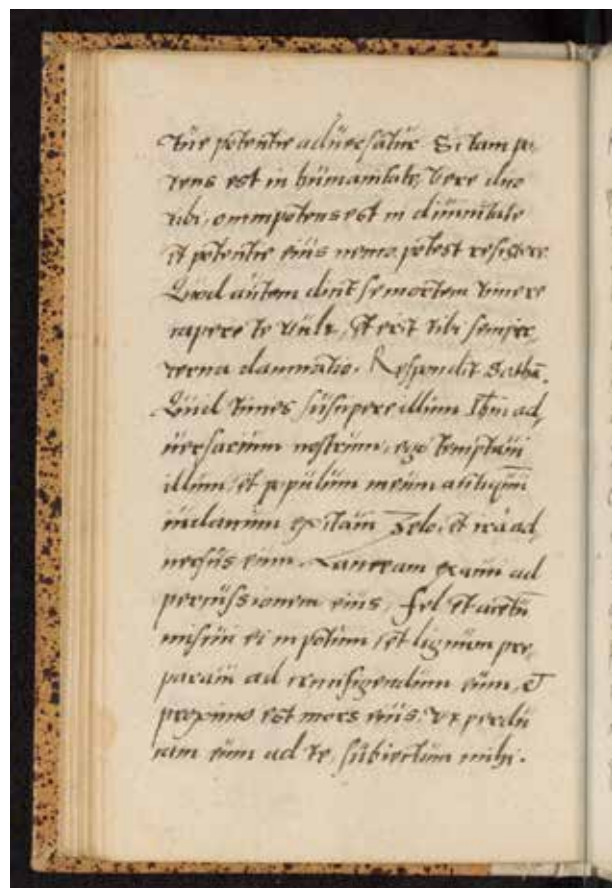 tue potentie aduersatur Si tam po,
tens est in humanitate, vere dico
tibi, omnipotens est in diuinitate
et potentie eius nemo potest resistere
Quod autem dicit se mortem timere
capere te uult, et erit tibi sempi,
terna damnatio. Respondit Satha.
Quid times suscipere illum Ihm ad,
uersarium nostrum, ego temptaui
illum, et populum meum antiquū
iudaicum excitaui zelo, et ira ad
uersus eum. Lanceam exacui ad
percussionem eius, fel et acetū
miscui ei in potum, et lignum pre,
paraui ad crucifigendum eum, et
proximo est mors eius, vt perdu
cam eum ad te, subiectum mihi.